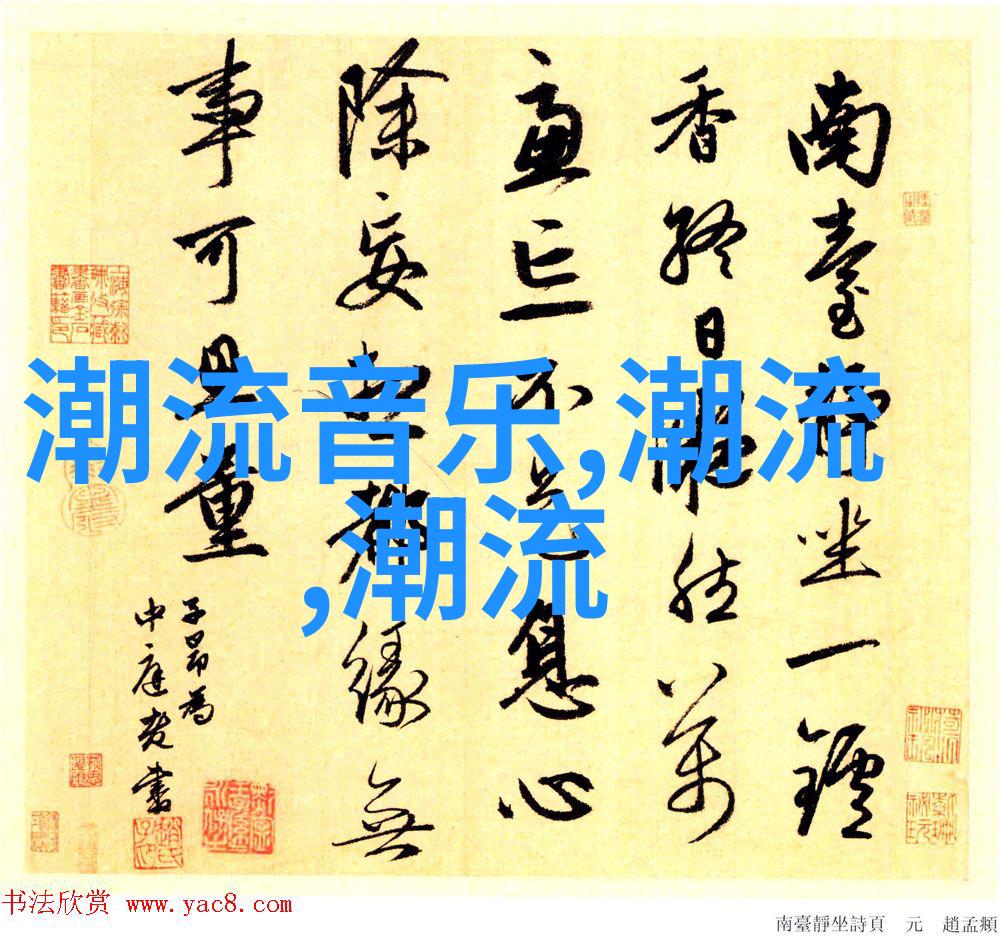 南臺靜坐一鑪
香終日凝然萬
慮亡不是息心
除妄想都緣無
事可思量
子昂為
中庭老書
潮流音乐,潮流
,潮流
书法欣赏 www.yac8.com
南臺靜坐詩頁 元 趙孟頫